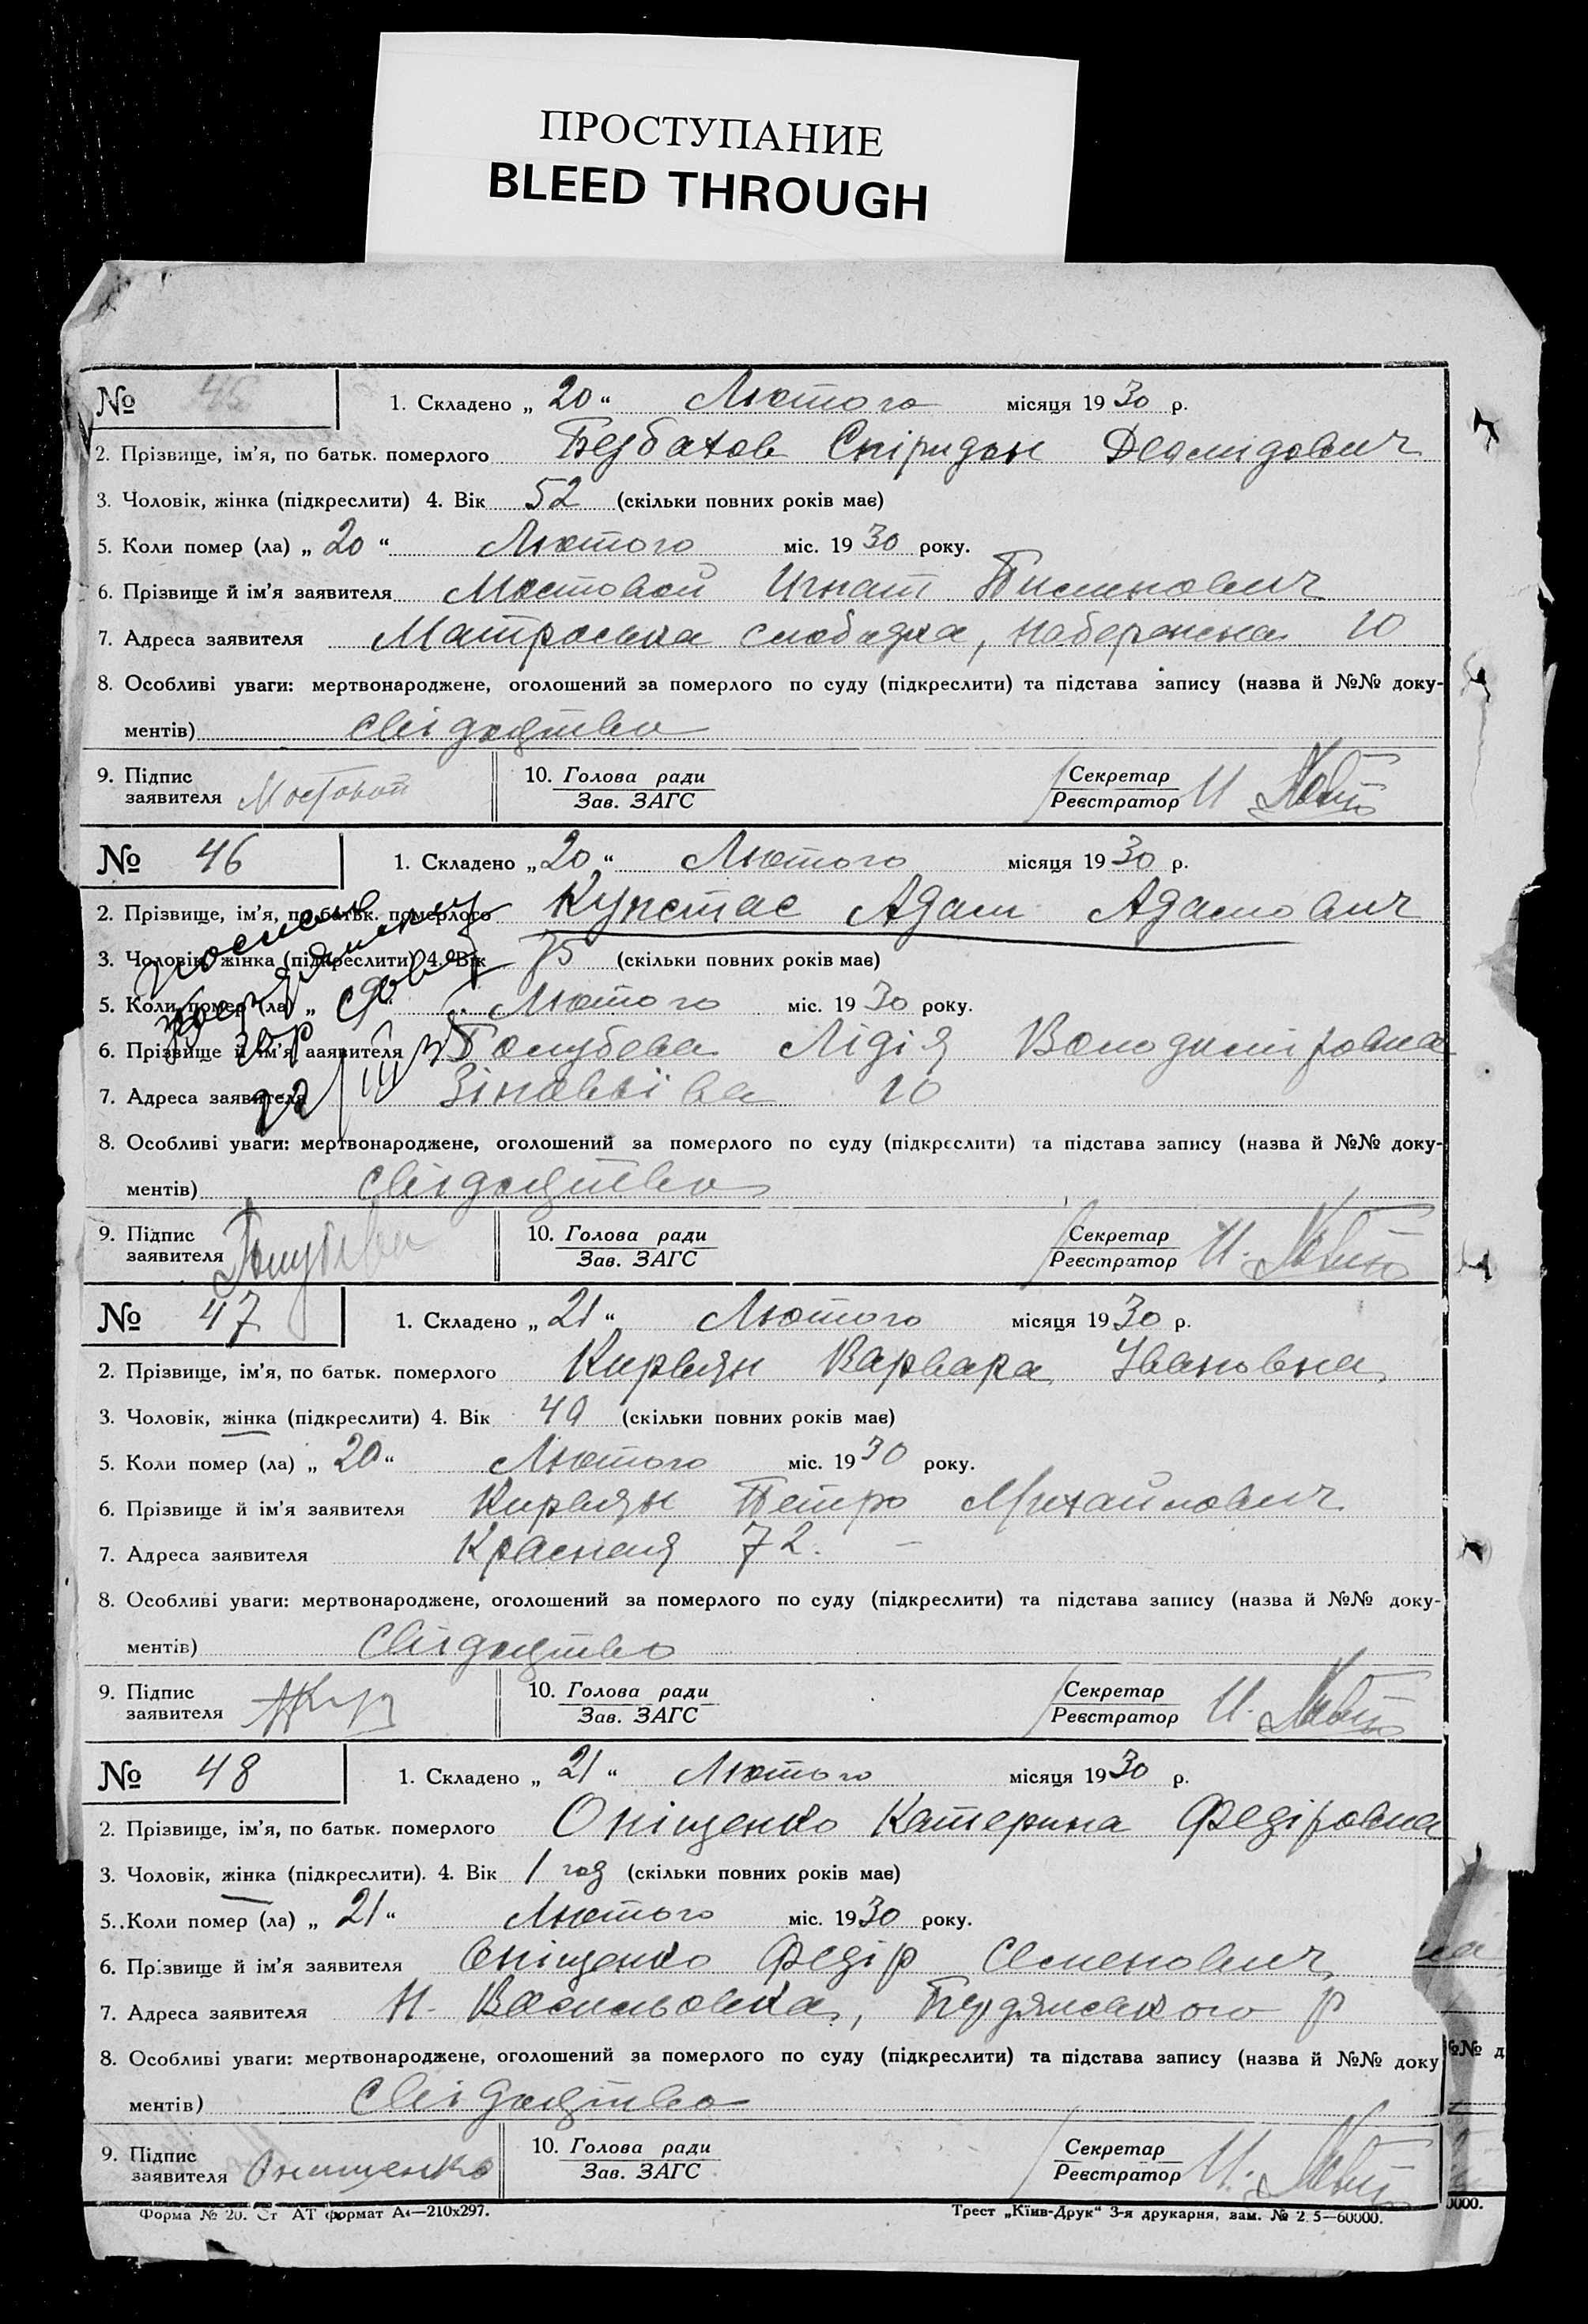 ПРОСТУПАНИЕ
BLEED THROUGH
№ 45 1. Складено „ 20 “ Лютого місяця 1930 р.
2. Прізвище, ім’я, по батьк. померлого Безбатов Спіридон Деомідович
3. Чоловік, жінка (підкреслити) 4. Вік 52 (скільки повних років має)
5. Коли помер (ла) „ 20 “ Лютого міс. 1930 року.
6. Прізвище й ім’я заявителя Мостовой Игнат
7. Адреса заявителя Матроська слободка, набережна 10
8. Особливі уваги: мертвонароджене, оголошений за померлого по суду (підкреслити) та підстава запису (назва й №№ доку-
ментів) свідоцтво
9. Підпис заявителя Мостовой 10. Голова ради Зав. ЗАГС Секретар Реєстратор И
№ 46 1. Складено „ 20 “ Лютого місяця 1930 р.
2. Прізвище, ім’я, по батьк. померлого Купстас Адам Адамович
3. Чоловік, жінка (підкреслити) 4. Вік 75 (скільки повних років має)
5. Коли помер (ла) „ Лютого міс. 1930 року.
6. Прізвище й ім’я заявителя Голубева Лідія Володимировна
7. Адреса заявителя Зіновьіва 10
8. Особливі уваги: мертвонароджене, оголошений за померлого по суду (підкреслити) та підстава запису (назва й №№ доку-
ментів) свідоцтво
9. Підпис заявителя Голубева 10. Голова ради Зав. ЗАГС Секретар Реєстратор И.
№ 47 1. Складено „ 21 “ Лютого місяця 1930 р.
2. Прізвище, ім’я, по батьк. померлого Кирьян Варвара Івановна
3. Чоловік, жінка (підкреслити) 4. Вік 49 (скільки повних років має)
5. Коли помер (ла) „ 20 “ Лютого міс. 1930 року.
6. Прізвище й ім’я заявителя Кирьян Петро Михайлович
7. Адреса заявителя Красная 72.
8. Особливі уваги: мертвонароджене, оголошений за померлого по суду (підкреслити) та підстава запису (назва й №№ доку-
ментів) Свідоцтво
9. Підпис заявителя 10. Голова ради Зав. ЗАГС Секретар Реєстратор И.
№ 48 1. Складено „ 21 “ Лютого місяця 1930 р.
2. Прізвище, ім’я, по батьк. померлого Оніщенко Катерина Федіровна
3. Чоловік, жінка (підкреслити). 4. Вік 1 год (скільки повних років має)
5. Коли помер (ла) „ 21 “ Лютого міс. 1930 року.
6. Прізвище й ім’я заявителя Оніщенко Федір Семенович
7. Адреса заявителя Н. Васильовка, Бердянського р
8. Особливі уваги: мертвонароджене, оголошений за померлого по суду (підкреслити) та підстава запису (назва й №№ доку
ментів) Свідоцтво
9. Підпис заявителя Онищенко 10. Голова ради Зав. ЗАГС Секретар Реєстратор И.
Форма № 20. Ст АТ формат А4—210х297. Трест „Київ-Друк“ 3-я друкарня, зам. № 2 5—60000.